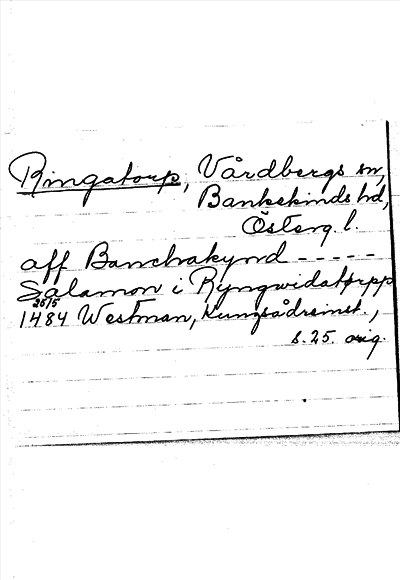 Ringatorp, Vårdbergs sn,
Bankekinds hd,
Österg.l.
aff Banchakynd - - - - -
Salamon i Ryngwidatorpp
26/5
1484 Westman, Kungsådreinst.,
s. 25. orig.